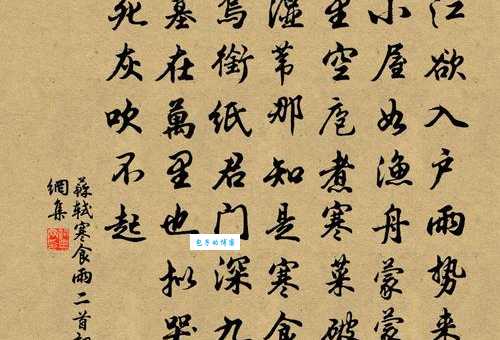 江欲入户雨势来
小屋如漁舟蒙蒙
里空庖煮寒菜破
湿苇那知是寒食
烏銜纸君门深九
墓在萬里也拟哭
死灰吹不起
蘇軾寒食雨二首
網集